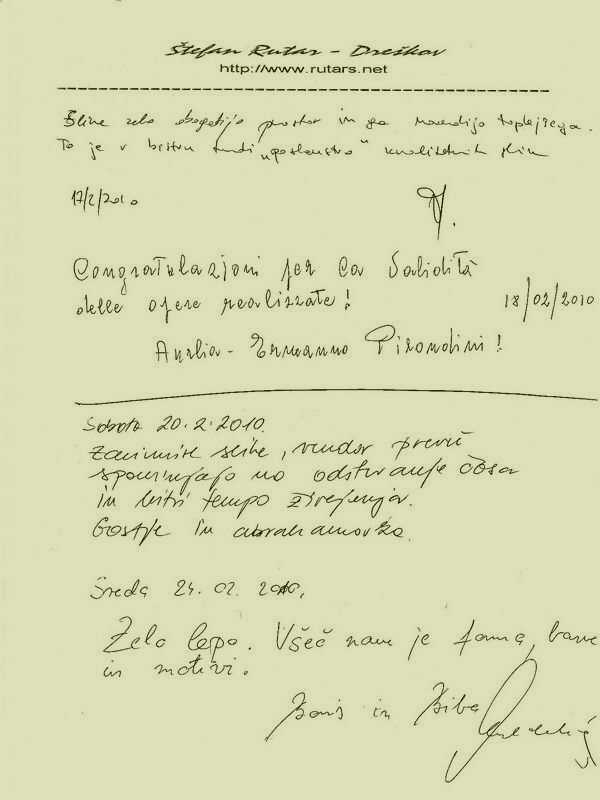 Štefan Rutar - Dreškov
http://www.rutars.net
Slike zelo bogatijo prostor in ga naredijo toplejšega.
To je v bistvu tudi „poslanstvo" kvalitetnih slik
17/2/2010
Congratulazioni per la Validità
delle opere realizzate!
18/02/2010
Aurlia - Ermanno Pirondini!
Sobota 20.2.2010.
Zanimive slike, vendar preveč
spominjajo na odštevanje časa
in hitri tempo življenja.
Gostje in abrahamovka.
Sreda 24. 02. 2010.
Zelo lepo. Všeč nam je forma, barve
in motivi.
Boris in Biba